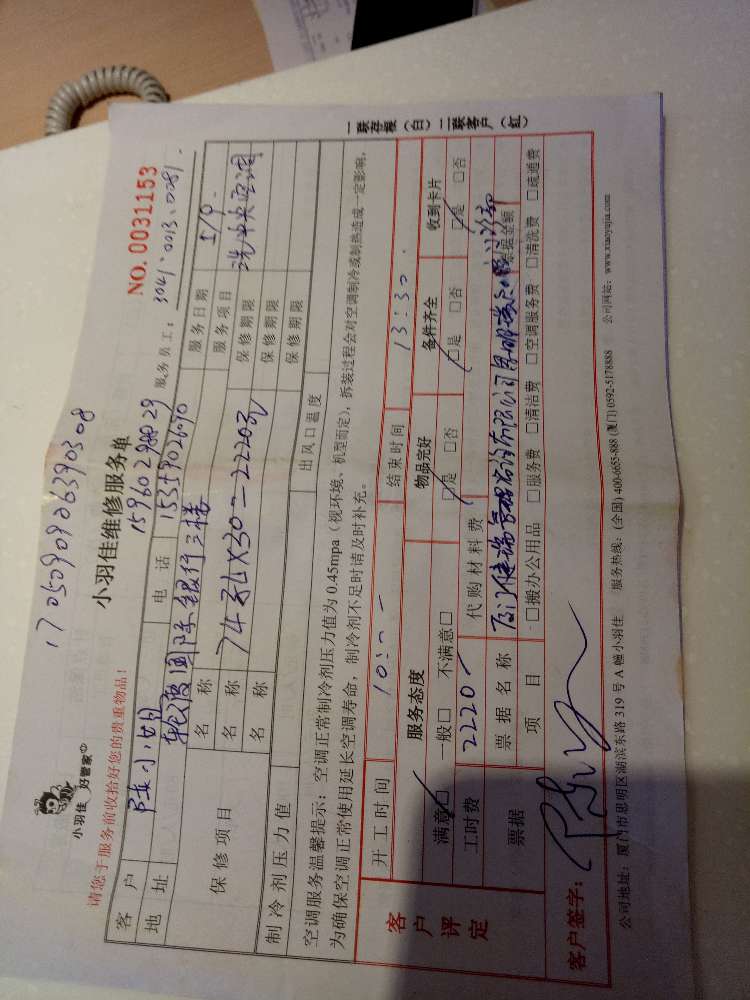 小羽佳 好管家
小羽佳维修服务单
NO. 0031153
请您于服务前收拾好您的贵重物品！
服务员工：3041、0013、0081.
客户 小姐 电话 15359026090
地址 国际银行三楼 服务日期 1/9.
保修项目 名称 74孔X30=2220元 服务项目 洗中央空调
名称 保修期限
名称 保修期限
保修期限
制冷剂压力值 出风口温度
空调服务温馨提示：空调正常制冷剂压力值为 0.45mpa（视环境、机型而定），拆装过程会对空调制冷或制热造成一定影响，
为确保空调正常使用延长空调寿命，制冷剂不足时请及时补充。
开工时间 10:-- 结束时间 13:30.
客户评定 服务态度 物品完好 备件齐全 收到卡片
满意□ 一般□ 不满意□ □是 □否 □是 □否 □是 □否
工时费 2220- 代购材料费
票据 票据名称 票据金额
项目 □搬办公用品 □服务费 □清洁费 □空调服务费 □清洗费 □疏通费
客户签字：
公司地址：厦门市思明区湖滨东路 319 号 A 幢小羽佳 服务热线：(全国) 400-6655-888 (厦门) 0592-5178888 公司网站：www.xiaoyujia.com
一联存根（白） 二联客户（红）